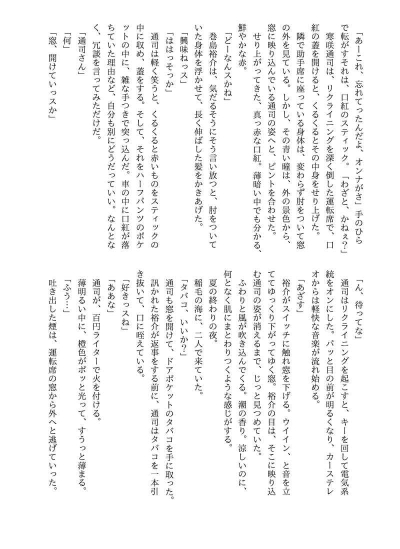 「あーこれ、忘れてったんだよ、オンナがさ」手のひら
で転がすそれは、口紅のスティック。「わざと、かねぇ？」
寒咲通司は、リクライニングを深く倒した運転席で、口
紅の蓋を開けると、くるくるとその中身をせり上げた。
隣で助手席に座っている身体は、変わらず肘をついて窓
の外を見ている。しかし、その青い瞳は、外の景色から、
窓に映り込んでいる通司の姿へと、ピントを合わせた。
せり上がってきた、真っ赤な口紅。薄暗い中でも分かる、
鮮やかな赤。
「どーなんスかね」
巻島裕介は、気だるそうにそう言い放つと、肘をついて
いた身体を浮かせて、長く伸ばした髪をかきあげた。
「興味ねッス」
「ははっそっか」
通司は軽く笑うと、くるくると赤いものをスティックの
中に収め、蓋をする。そして、それをハーフパンツのポケ
ットの中に、雑な手つきで突っ込んだ。車の中に口紅が落
ちていた理由など、自分も別にどうだっていい。なんとな
く、冗談を言ってみただけだ。
「通司さん」
「何」
「窓、開けていっスか」
「ん、待ってな」
通司はリクライニングを起こすと、キーを回して電気系
統をオンにした。パッと目の前が明るくなり、カーステレ
オからは軽快な音楽が流れ始める。
「あざす」
裕介がスイッチに触れ窓を下げる。ウイイン、と音を立
ててゆっくり下がってゆく窓。裕介の目は、そこに映り込
む通司の姿が消えるまで、じっと見つめていた。
ふわりと風が吹き込んでくる。潮の香り。涼しいのに、
何となく肌にまとわりつくような感じがする。
夏の終わりの夜。
稲毛の海に、二人で来ていた。
「タバコ、いいか？」
通司も窓を開けて、ドアポケットのタバコを手に取った。
訊かれた裕介が返事をする前に、通司はタバコを一本引
き抜いて、口に咥えている。
「好きっスね」
「ああな」
通司が、百円ライターで火を付ける。
薄明るい中に、橙色がポッと光って、すうっと薄まる。
「ふう…」
吐き出した煙は、運転席の窓から外へと逃げていった。